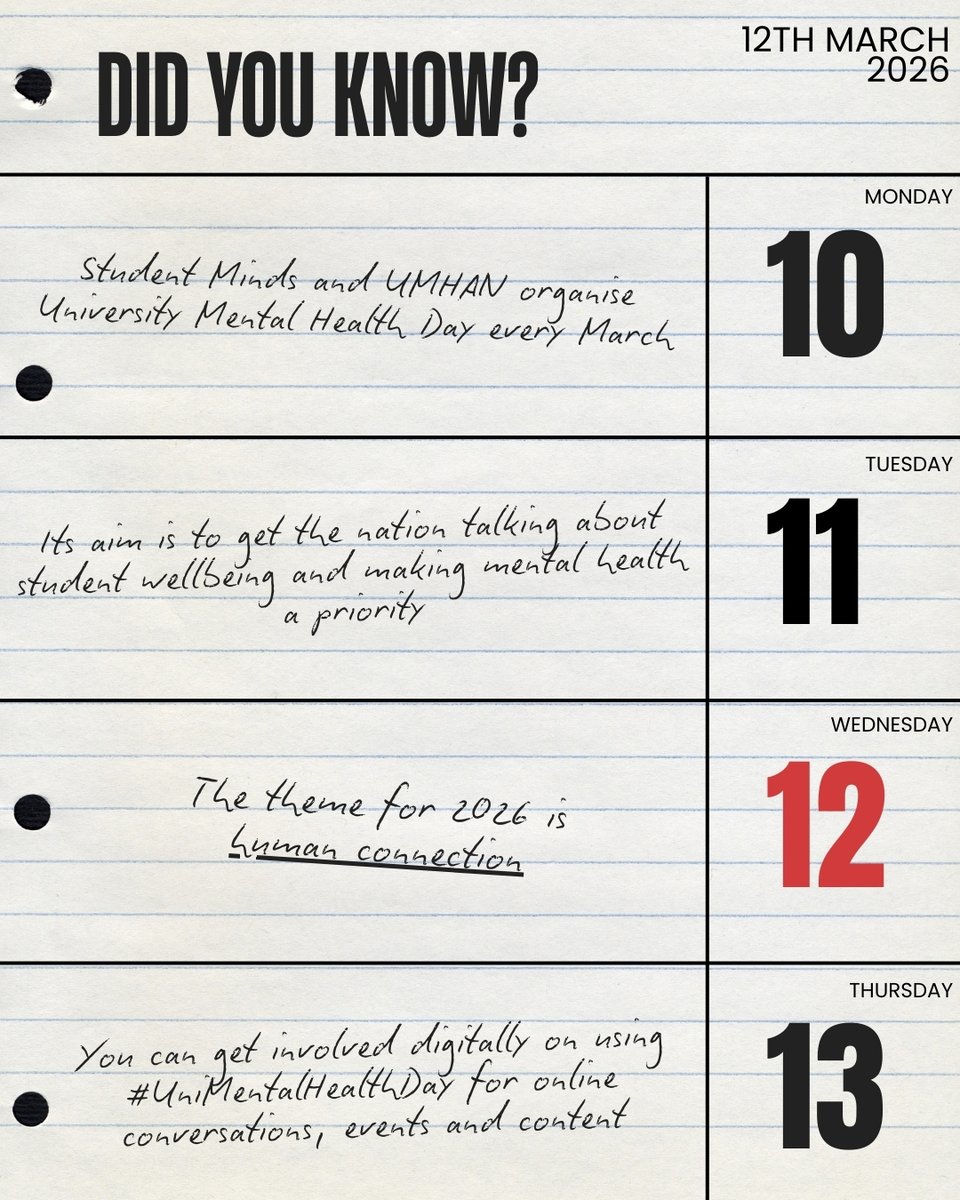 DID YOU KNOW?
12TH MARCH
2026
MONDAY
10
Student Minds and UMHAN organise
University Mental Health Day every March
TUESDAY
11
Its aim is to get the nation talking about
student wellbeing and making mental health
a priority
WEDNESDAY
12
The theme for 2026 is
human connection
THURSDAY
13
You can get involved digitally on using
#UniMentalHealthDay for online
conversations, events and content